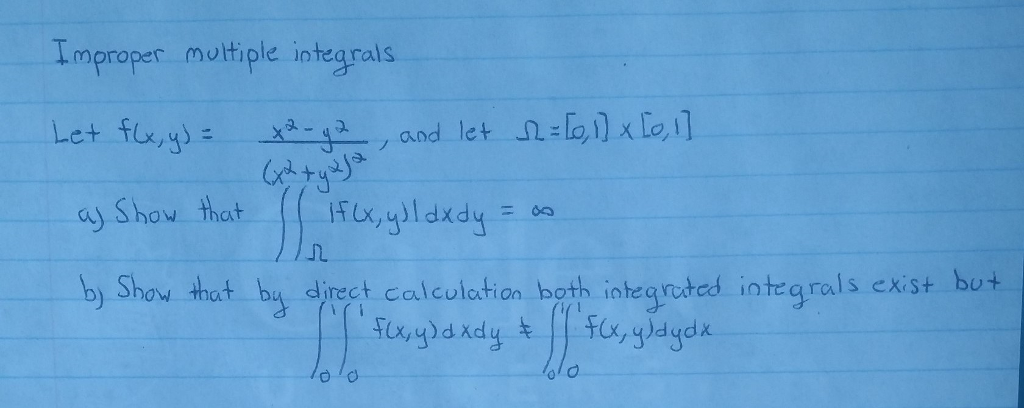 Improper multiple integrals
Let f(x,y) = x²-y² / (x²+y²)² , and let Ω=[0,1] x [0,1]
a) Show that ∬_Ω |f(x,y)|dxdy = ∞
b) Show that by direct calculation both integrated integrals exist but
∫₀¹∫₀¹ f(x,y)dxdy ≠ ∫₀¹∫₀¹ f(x,y)dydx